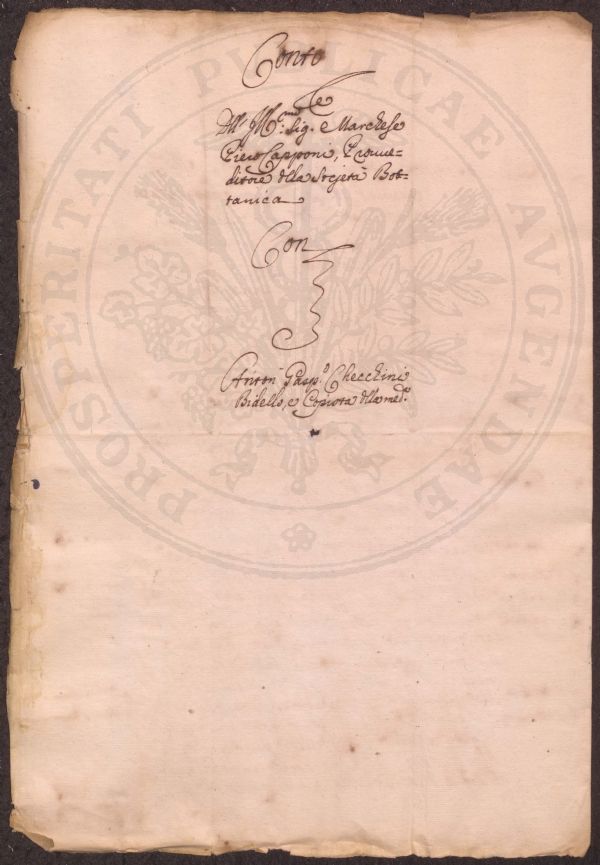 Conto
Dll' Ill.mo Sig.e Marchese
Piero Capponi, Provve-
ditore dlla Socjeta Bot-
tanica
Con
Anton. Gasp.o Checchini
Bidello, e Copista dlla med.a
PROSPERITATI PUBLICAE AVGENDAE